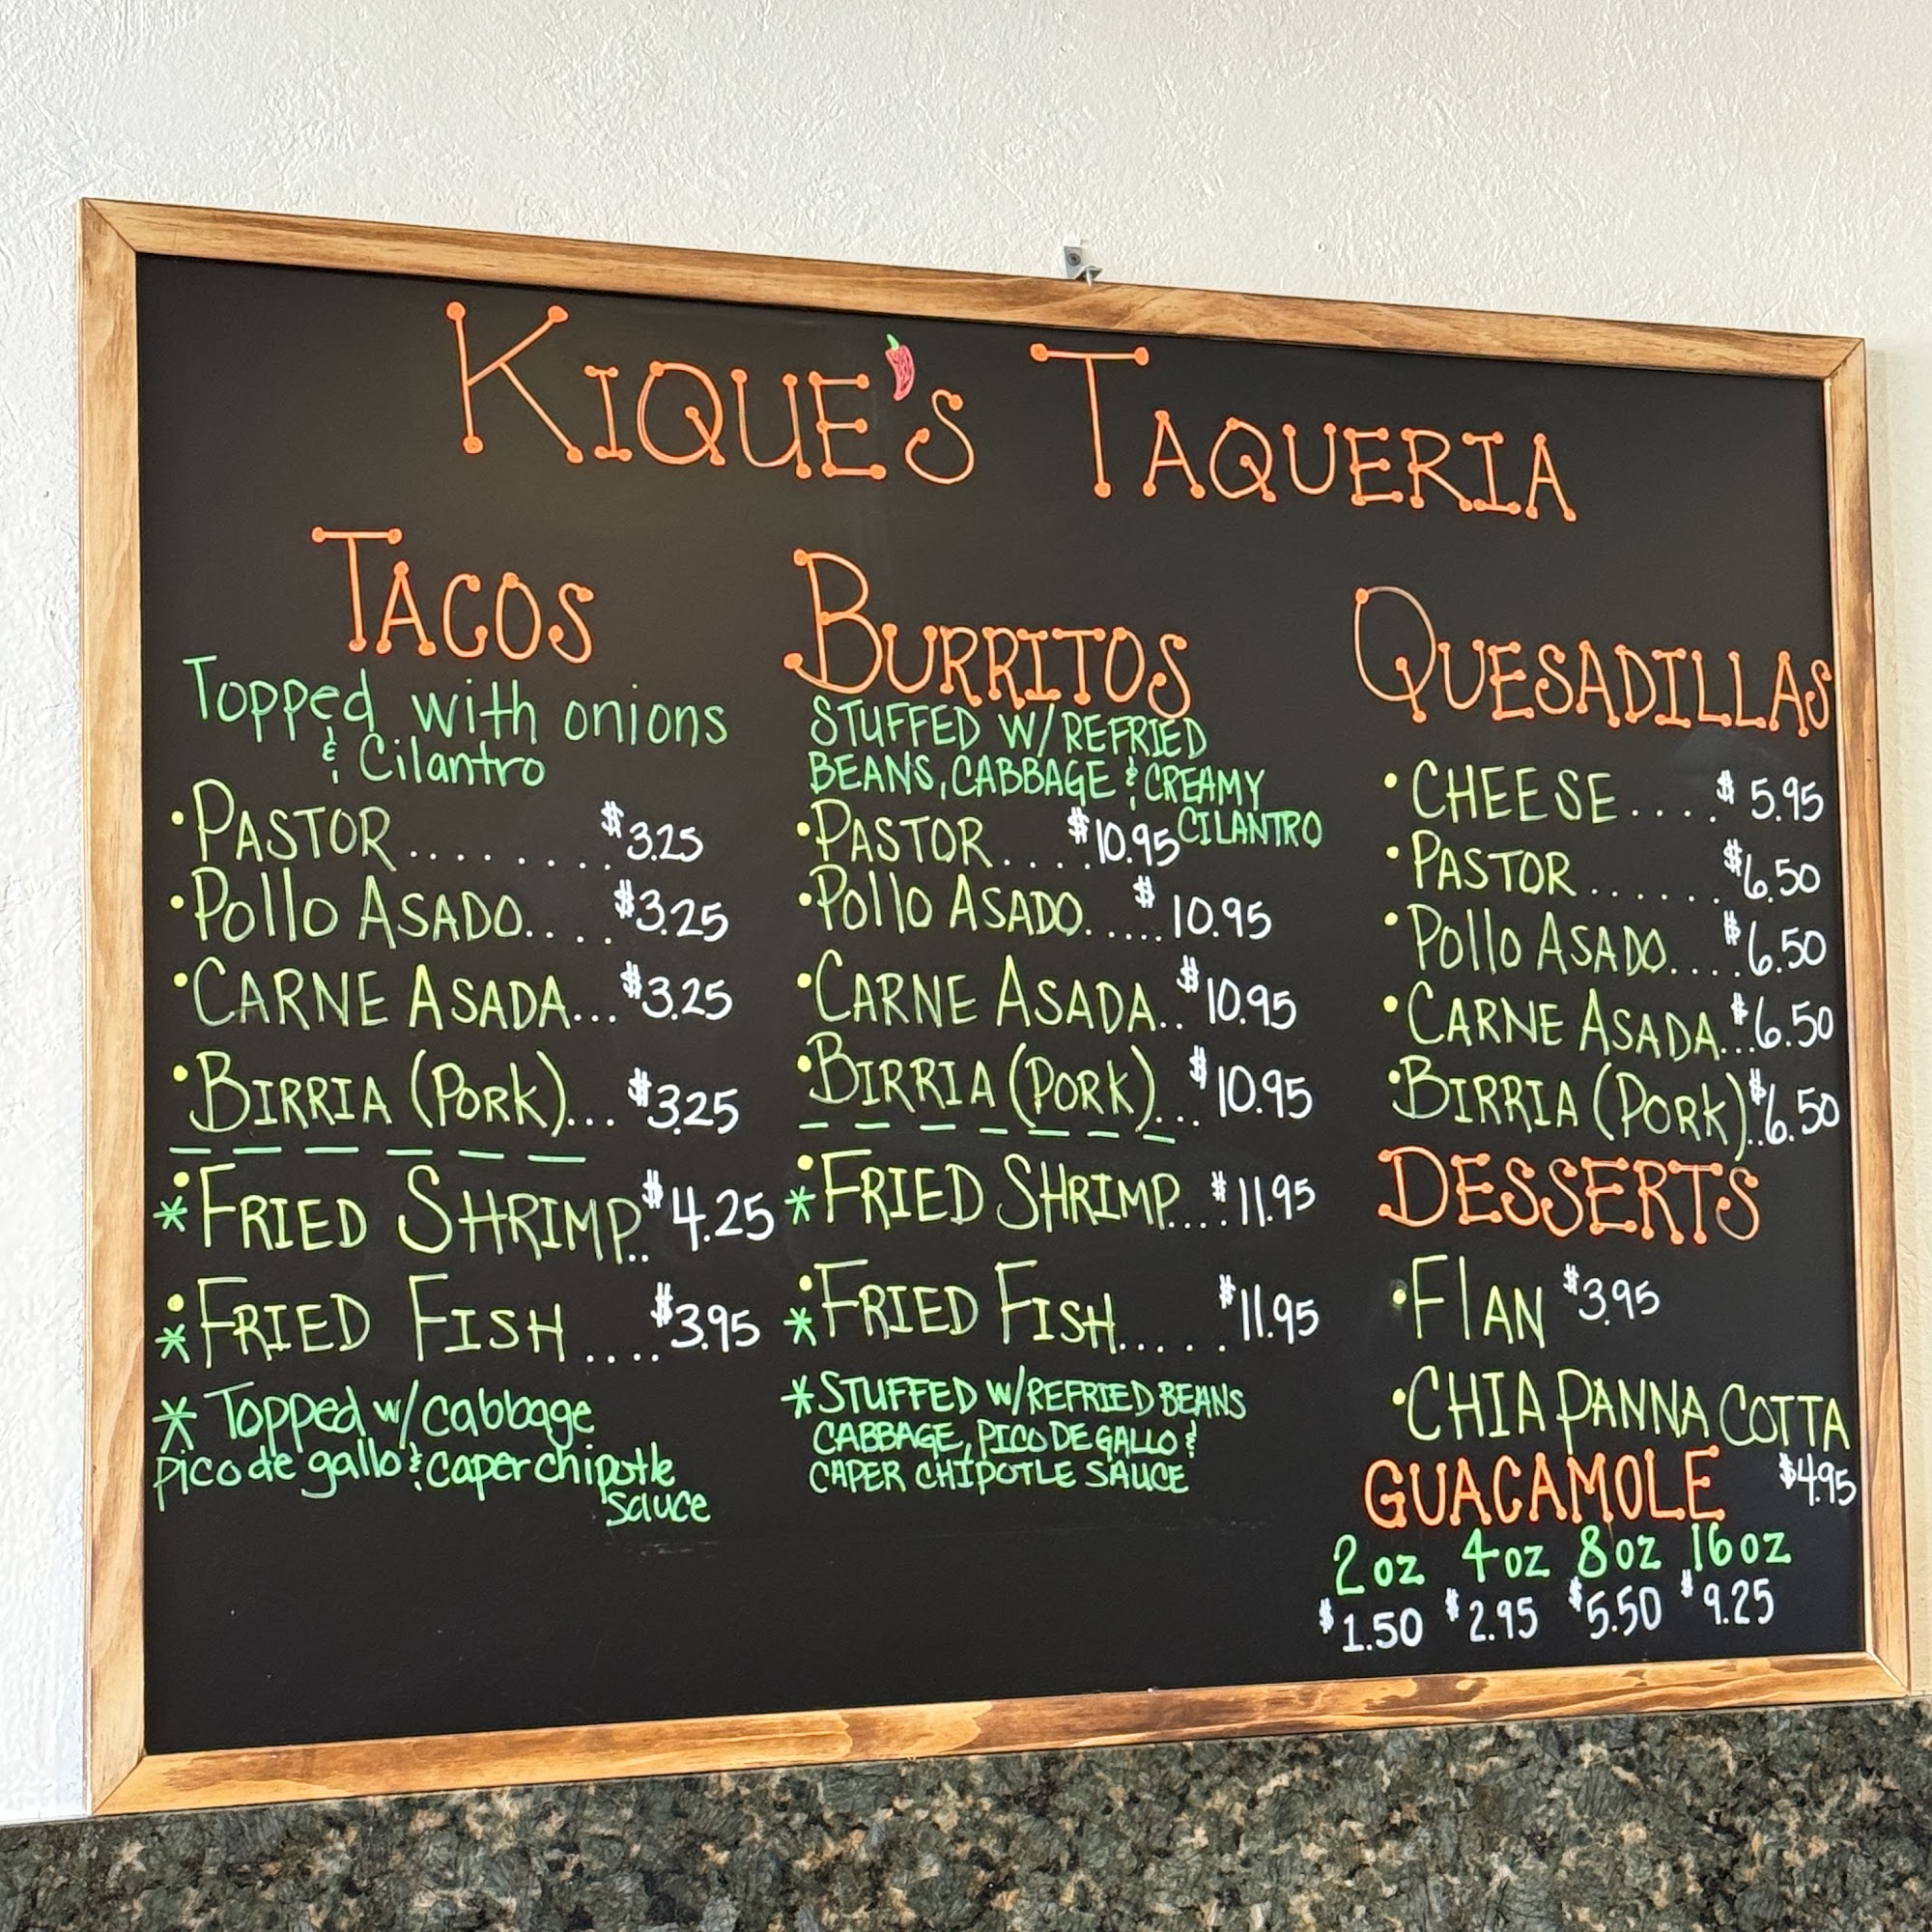 KIQUE'S TAQUERIA
TACOS
Topped with onions
& Cilantro
• PASTOR ......... $3.25
• Pollo ASADO..... $3.25
• CARNE ASADA... $3.25
• BIRRIA (PORK)... $3.25
_ _ _ _ _ _
• * FRIED SHRIMP.. $4.25
• * FRIED FISH .... $3.95
* Topped w/ cabbage
pico de gallo & caper chipotle
sauce
BURRITOS
STUFFED W/ REFRIED
BEANS, CABBAGE & CREAMY
CILANTRO
• PASTOR..... $10.95
• Pollo ASADO..... $10.95
• CARNE ASADA.. $10.95
• BIRRIA (PORK)... $10.95
_ _ _ _ _ _ _
• * FRIED SHRIMP.... $11.95
• * FRIED FISH...... $11.95
* STUFFED W/ REFRIED BEANS
CABBAGE, PICO DE GALLO &
CAPER CHIPOTLE SAUCE
QUESADILLAS
• CHEESE.... $5.95
• PASTOR ...... $6.50
• Pollo ASADO.... $6.50
• CARNE ASADA... $6.50
• BIRRIA (PORK).. $6.50
DESSERTS
• FlAN $3.95
• CHIA PANNA COTTA
$4.95
GUACAMOLE
2 oz 4 oz 8 oz 16 oz
$1.50 $2.95 $5.50 $9.25